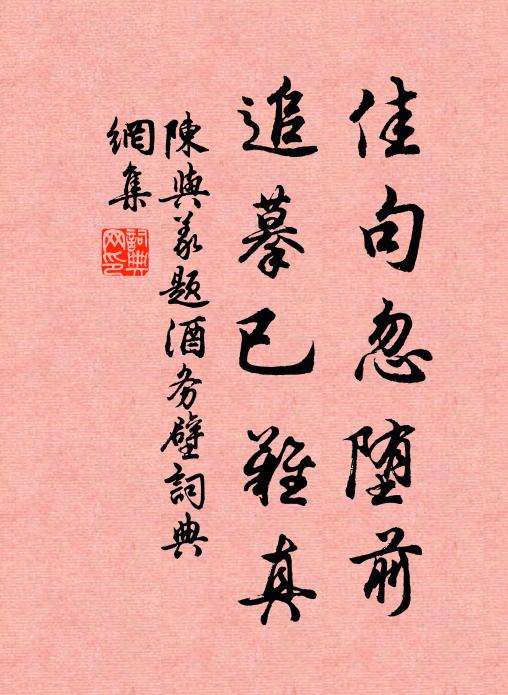 佳句忽堕前
追摹已難真
陳與義題酒务壁詞典
網集
詞典网印